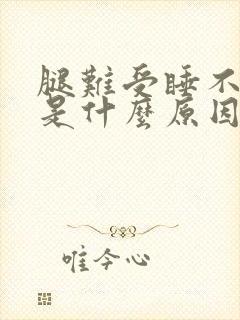 腿難受睡不
是什麼原因
唯今心